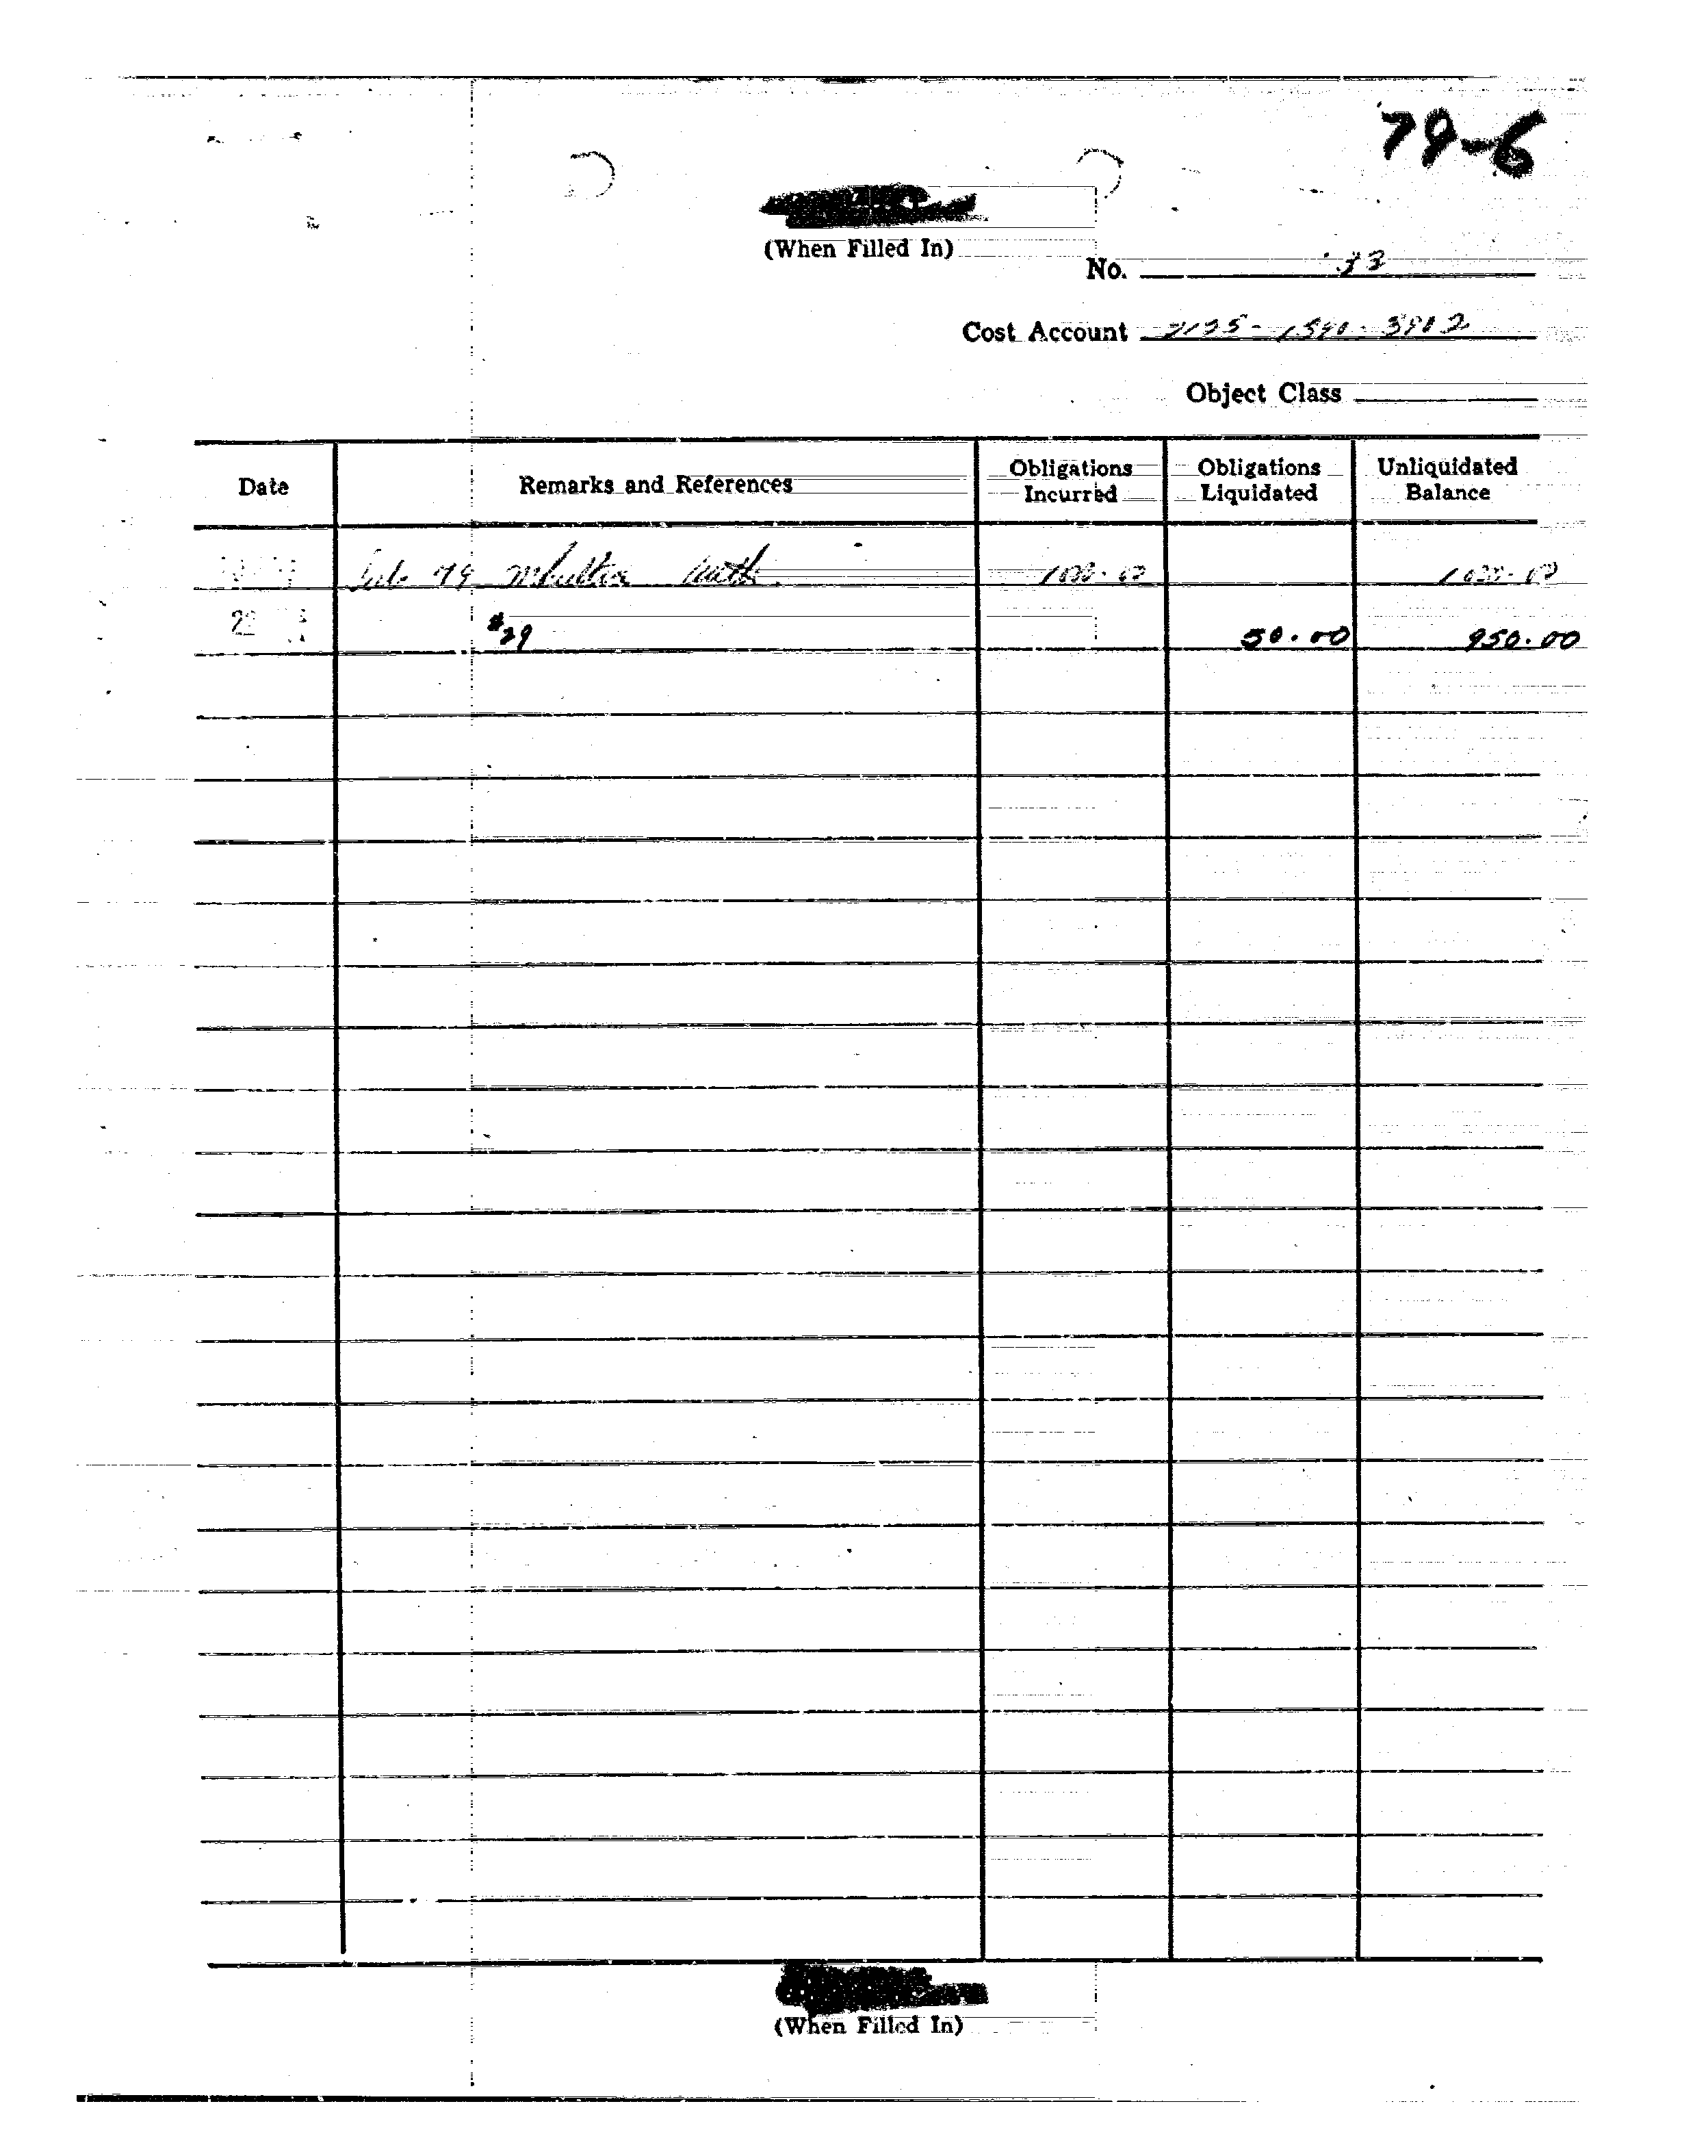 79-6
(When Filled In)
No. 33
Cost Account 2125-1390-3902
Object Class
Date Remarks and References Obligations Incurred Obligations Liquidated Unliquidated Balance
79 1000.00 1000.00
22 #29 50.00 950.00
(When Filled In)